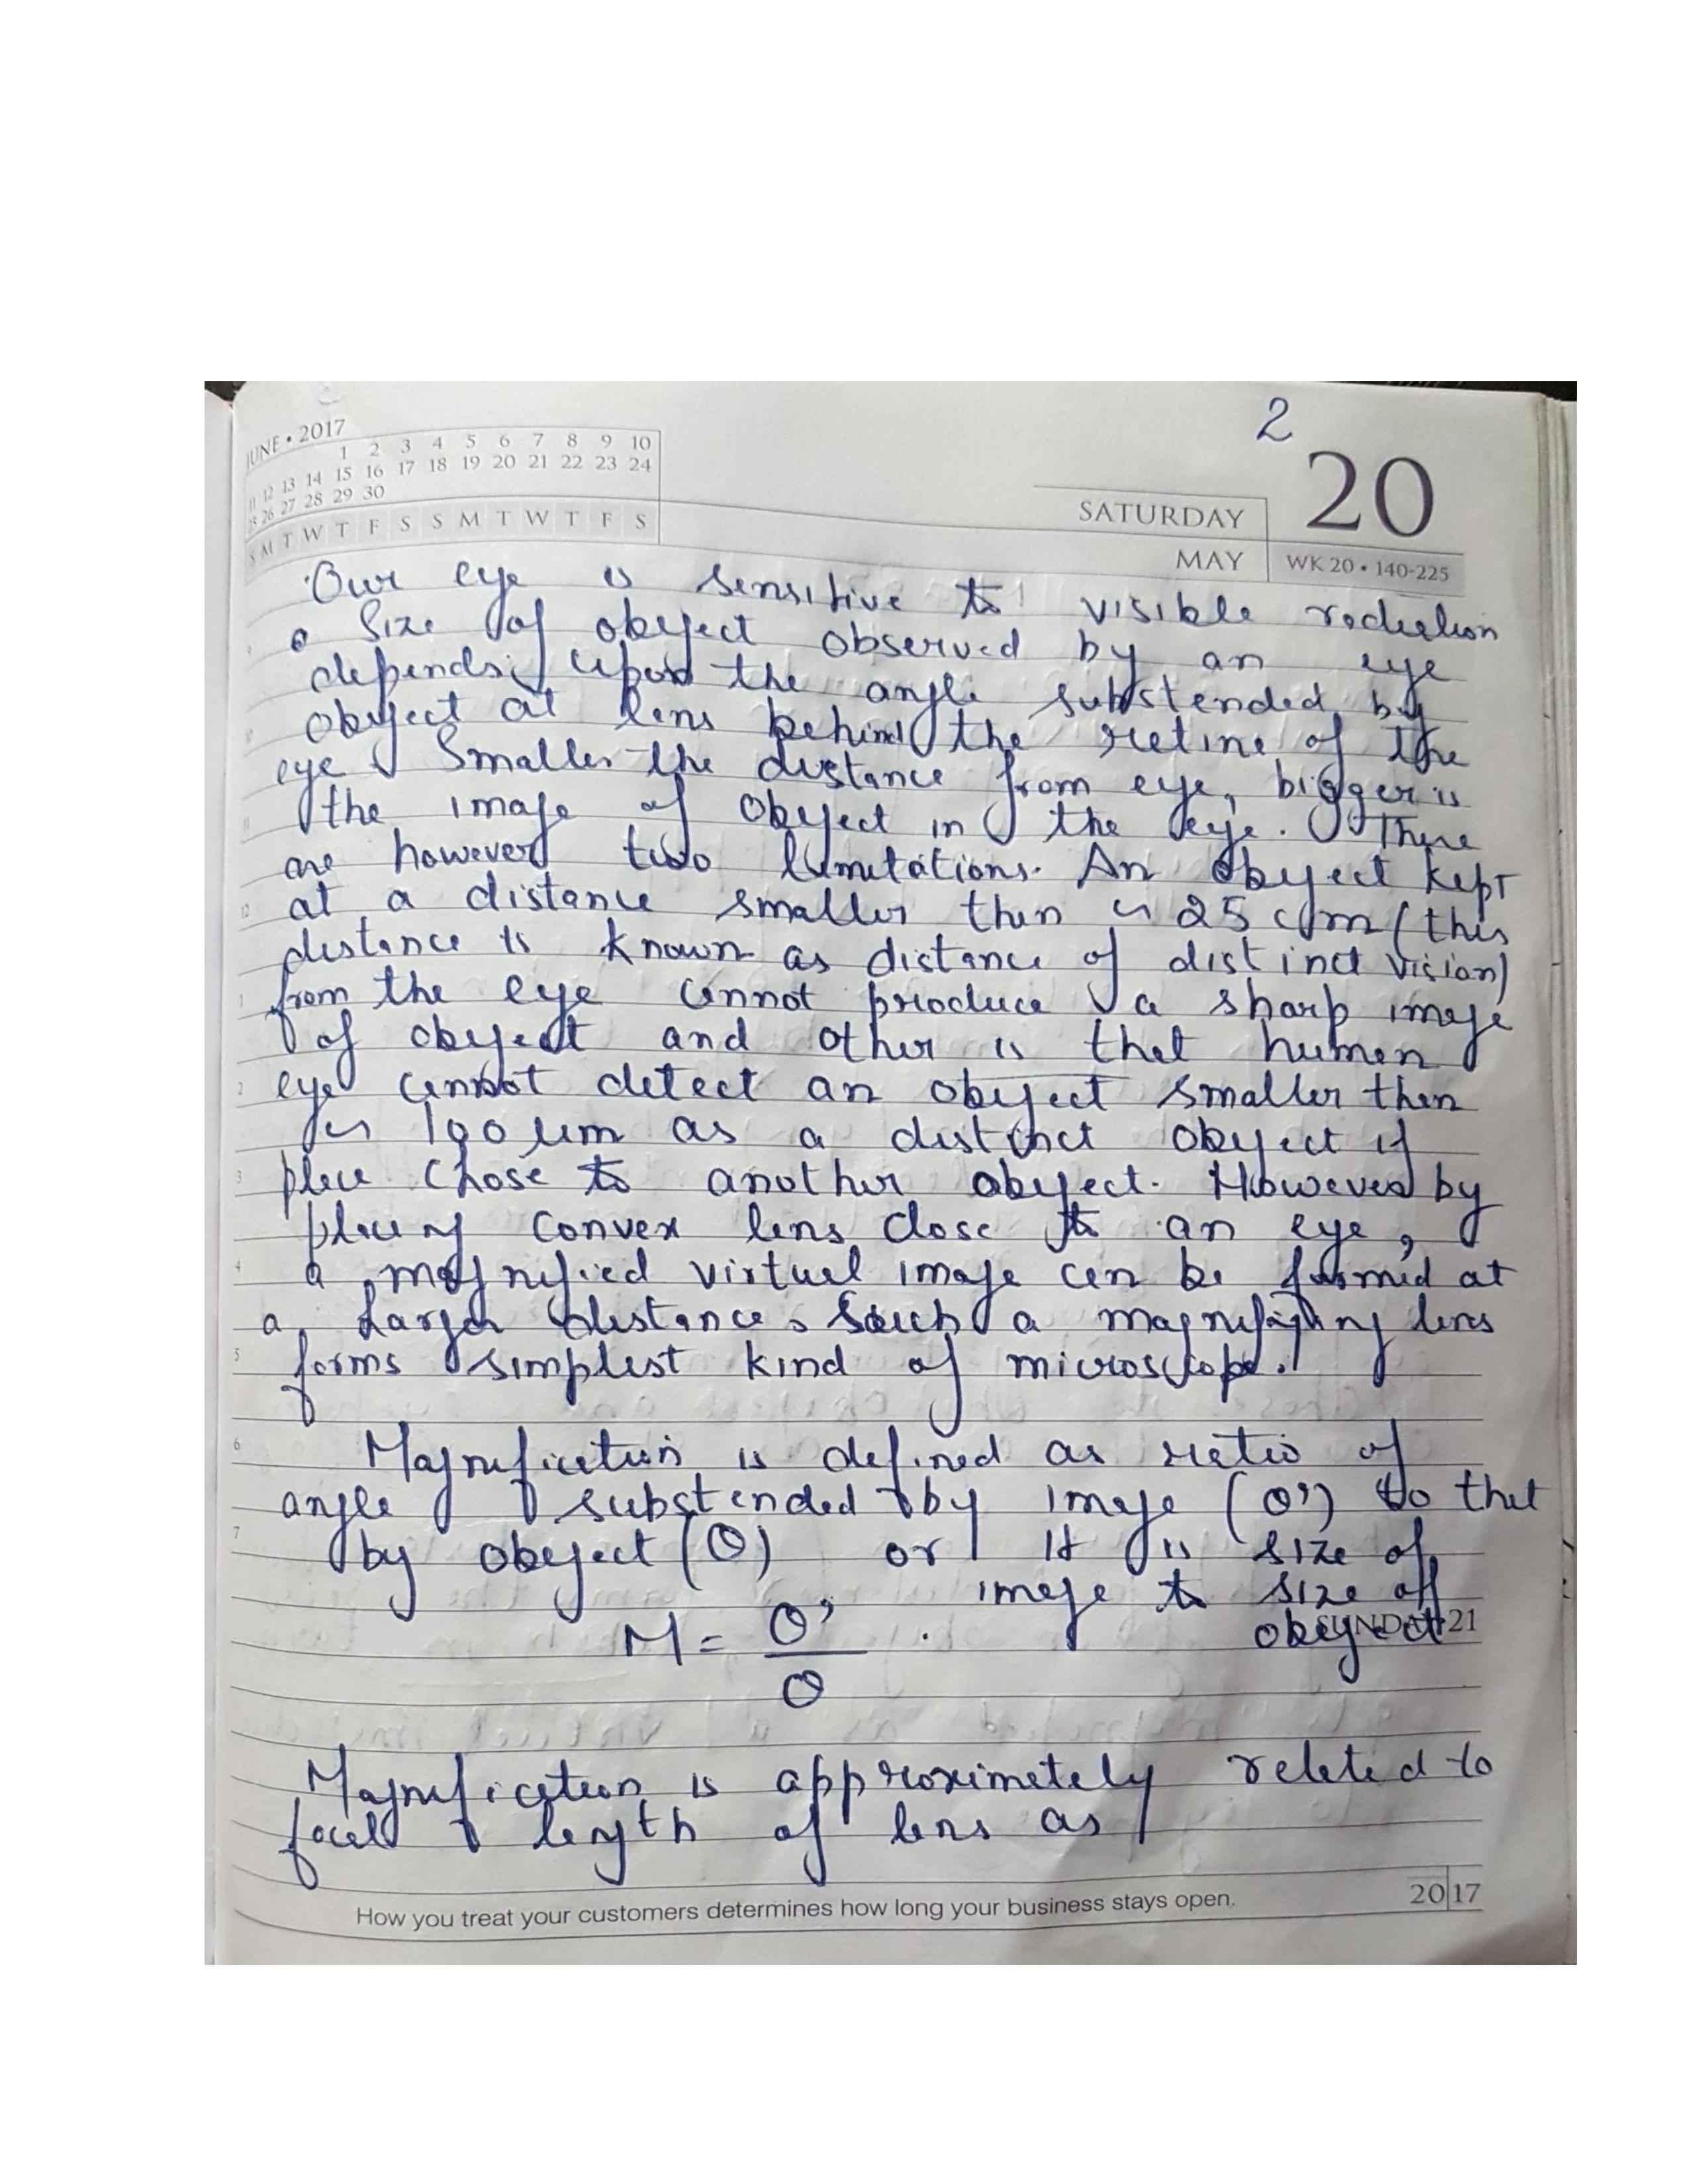 2
JUNE • 2017
1 2 3 4 5 6 7 8 9 10
11 12 13 14 15 16 17 18 19 20 21 22 23 24
25 26 27 28 29 30
S M T W T F S S M T W T F S
20
SATURDAY
MAY
WK 20 • 140-225
Our eye is sensitive to visible radiation
• Size of obeject observed by an eye
depends upon the angle substended by
obeject at lens behind the retina of the
eye. Smaller the distance from eye, bigger is
the image of obeject in the eye. There
are however two limitations. An obeject kept
at a distance smaller than ~ 25 cm (this
distance is known as distance of distinct vision)
from the eye cannot produce a sharp image
of obeject and other is that human
eye cannot detect an obeject smaller than
~ 100 um as a distinct obeject if
place chose to another obeject. However by
placing convex lens close to an eye,
a magnified virtual image can be formed at
a larger distance. Such a magnifying lens
forms simplest kind of microscope.
Magnification is defined as ratio of
angle substended by image (θ') to that
by obeject (θ) or It is size of
image to size of
obeject
SUNDAY 21
M = θ'
θ
Magnification is approximately related to
focal length of lens as
How you treat your customers determines how long your business stays open.
2017